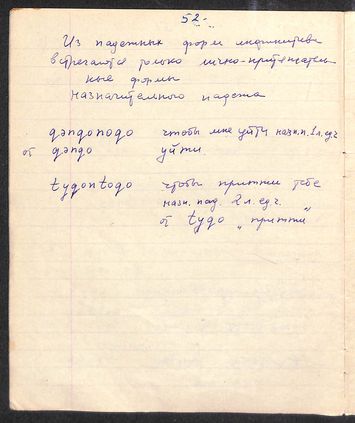 52.
Из падежных форм инфинитива
встречаются только лично-притяжатель-
ные формы
назначительного падежа
дэпдоподо чтобы мне уйти назн.п. 1 л. едч
от дэпдо уйти.
tудопtодо чтобы притти тебе
назн. пад. 2 л. ед ч.
от tудо „притти"